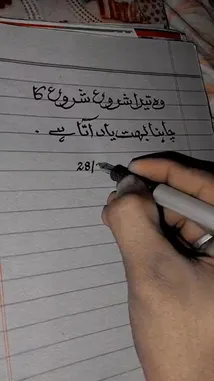 وہ تیرا شروع شروع کا
چاہنا بہت یاد آتا ہے .
28/